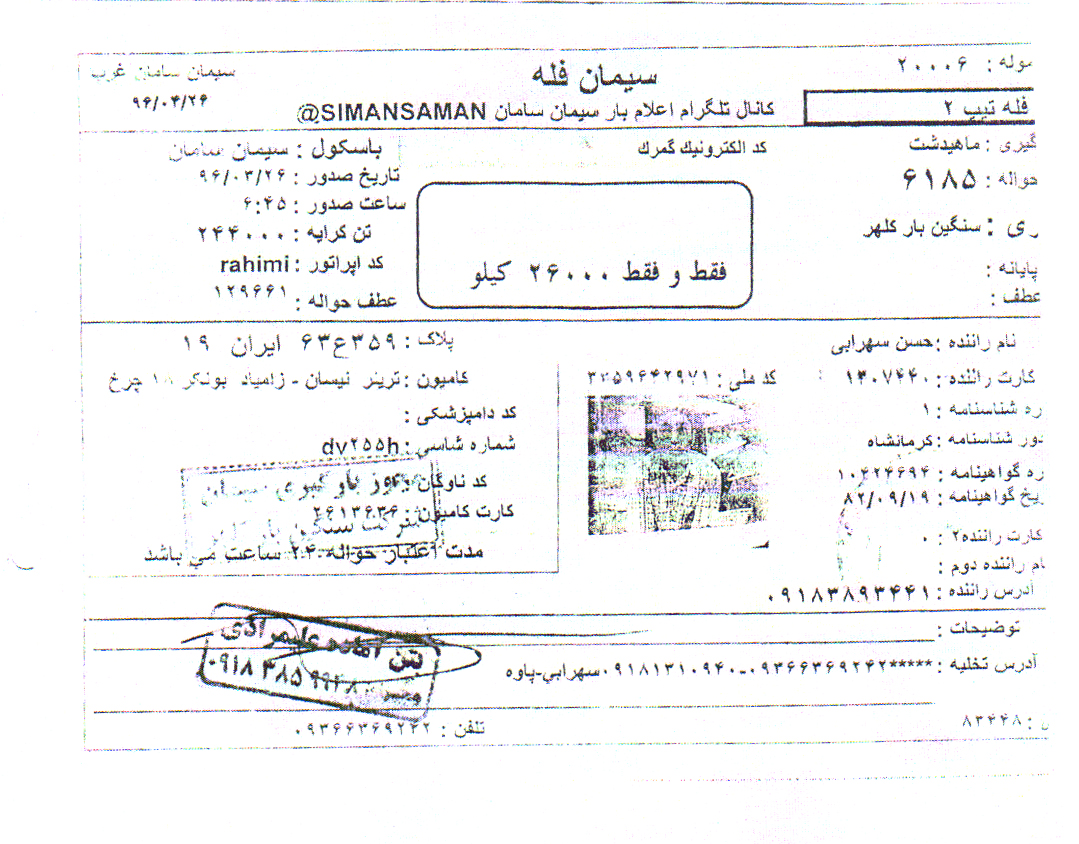 موله : ۲۰۰۰۶
سیمان فله
سیمان سامان غرب
فله تیپ ۲
کانال تلگرام اعلام بار سیمان سامان SIMANSAMAN@
۹۶/۰۳/۲۶
گیری : ماهیدشت
کد الکترونیك گمرك
باسکول : سیمان سامان
حواله : ۶۱۸۵
تاریخ صدور : ۹۶/۰۳/۲۶
ساعت صدور : ۶:۴۵
ری : سنگین بار کلهر
تن کرایه : ۲۴۴۰۰۰
فقط و فقط ۲۶۰۰۰ کیلو
پایانه :
کد اپراتور : rahimi
عطف :
عطف حواله : ۱۲۹۶۶۱
نام راننده : حسن سهرابی
پلاک : ۳۵۹ع۶۳ ایران ۱۹
کارت راننده : ۱۳۰۷۴۴۰
کد ملی : ۳۲۵۹۶۴۲۹۷۱
کامیون : تریلر نیسان - زامیاد بونکر ۱۸ چرخ
ره شناسنامه : ۱
کد دامپزشکی :
دور شناسنامه : کرمانشاه
شماره شاسی : dv۲۵۵h
ره گواهینامه : ۱۰۴۲۴۶۹۴
کد ناوگان :
یخ گواهینامه : ۸۲/۰۹/۱۹
کارت کامیون : ۲۶۱۳۶۳۶
کارت راننده۲ : ۰
مدت اعتبار حواله ۲۴ ساعت می باشد
ام راننده دوم :
آدرس راننده : ۰۹۱۸۳۸۹۳۴۴۱
توضیحات :
بتن آماده علیمرادی
۰۹۱۸ ۳۸۵ ۹۹۲۸
آدرس تخلیه : *****۰۹۳۶۶۳۶۹۲۴۲-۰۹۱۸۱۳۱۰۹۴۰سهرابی-پاوه
ن : ۸۳۴۴۸
تلفن : ۰۹۳۶۶۳۶۹۲۴۲